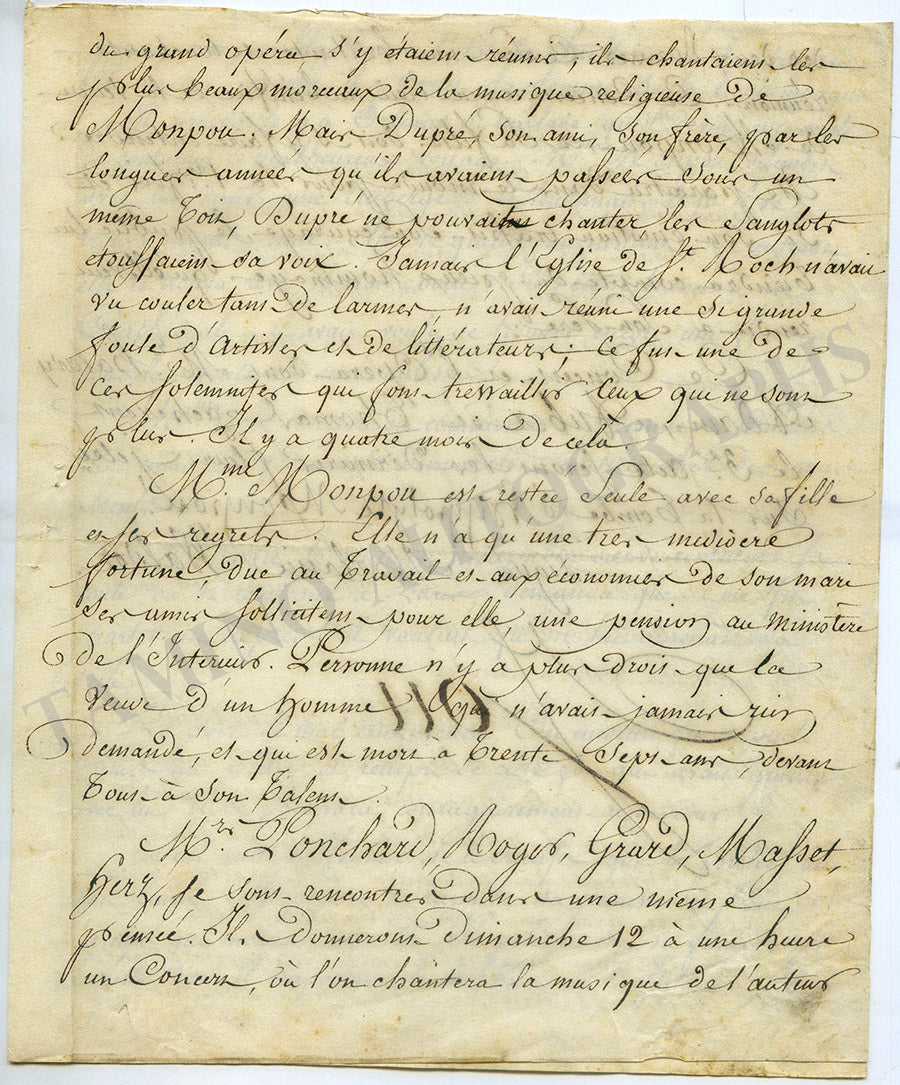 du grand opéra s'y étaient réunis, ils chantaient les
plus beaux morceaux de la musique religieuse de
Monpou. Mais Dupré, son ami, son frère, par les
longues années qu'ils avaient passées sous un
même toit, Dupré ne pouvait chanter, les sanglots
étouffaient sa voix. Jamais l'Eglise de St. Roch n'avait
vu couler tant de larmes, n'avait réuni une si grande
foule d'artistes et de littérateurs; ce fut une de
ces solemnites qui font tressaillir ceux qui ne sont
plus. Il y a quatre mois de celà.
Mme. Monpou est restée seule avec sa fille
et ses regrets. Elle n'a qu'une tres mediocre
fortune, due au travail et aux économies de son mari
ses amis sollicitent pour elle, une pension au ministère
de l'Interieur. Personne n'y a plus droit que la
veuve d'un homme qui n'avait jamais rien
demandé, et que est mort à trente sept ans, devant
tout à son talent.
Mrs. Ponchard, Roger, Grard, Masset,
Herz, se sont rencontres dans une même
pensée. Ils donneront dimanche 12 à une heure
un Concert, où l'on chantera la musique de l'auteur
TAMINO AUTOGRAPHS